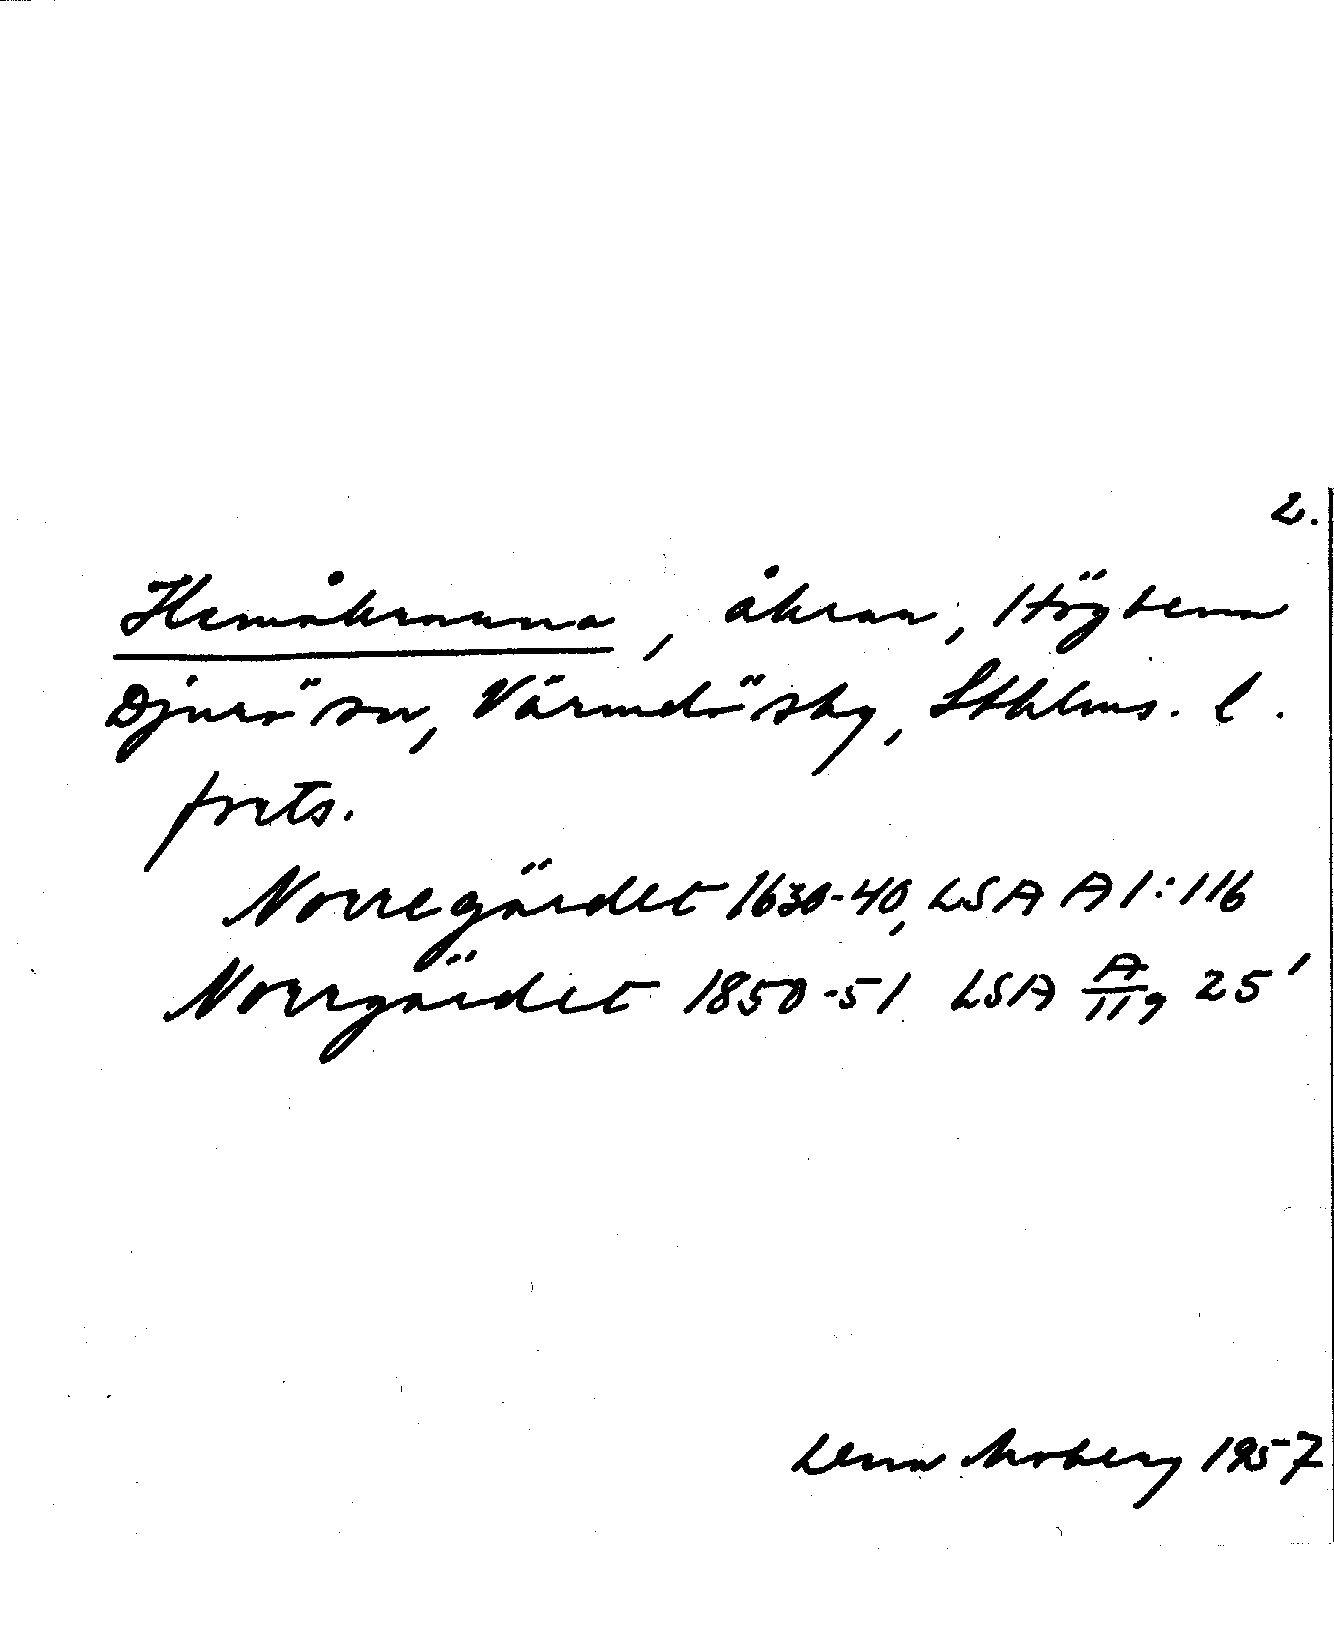 2.
Hemåkrarna, åkrar, Högbena
Djurö sn, Värmdö skg, Sthlms. l.
forts.
Norregärdet 1630-40, LSA A 1:116
Norrgärdet 1850-51 LSA A/119 25'
Lena Moberg 1957